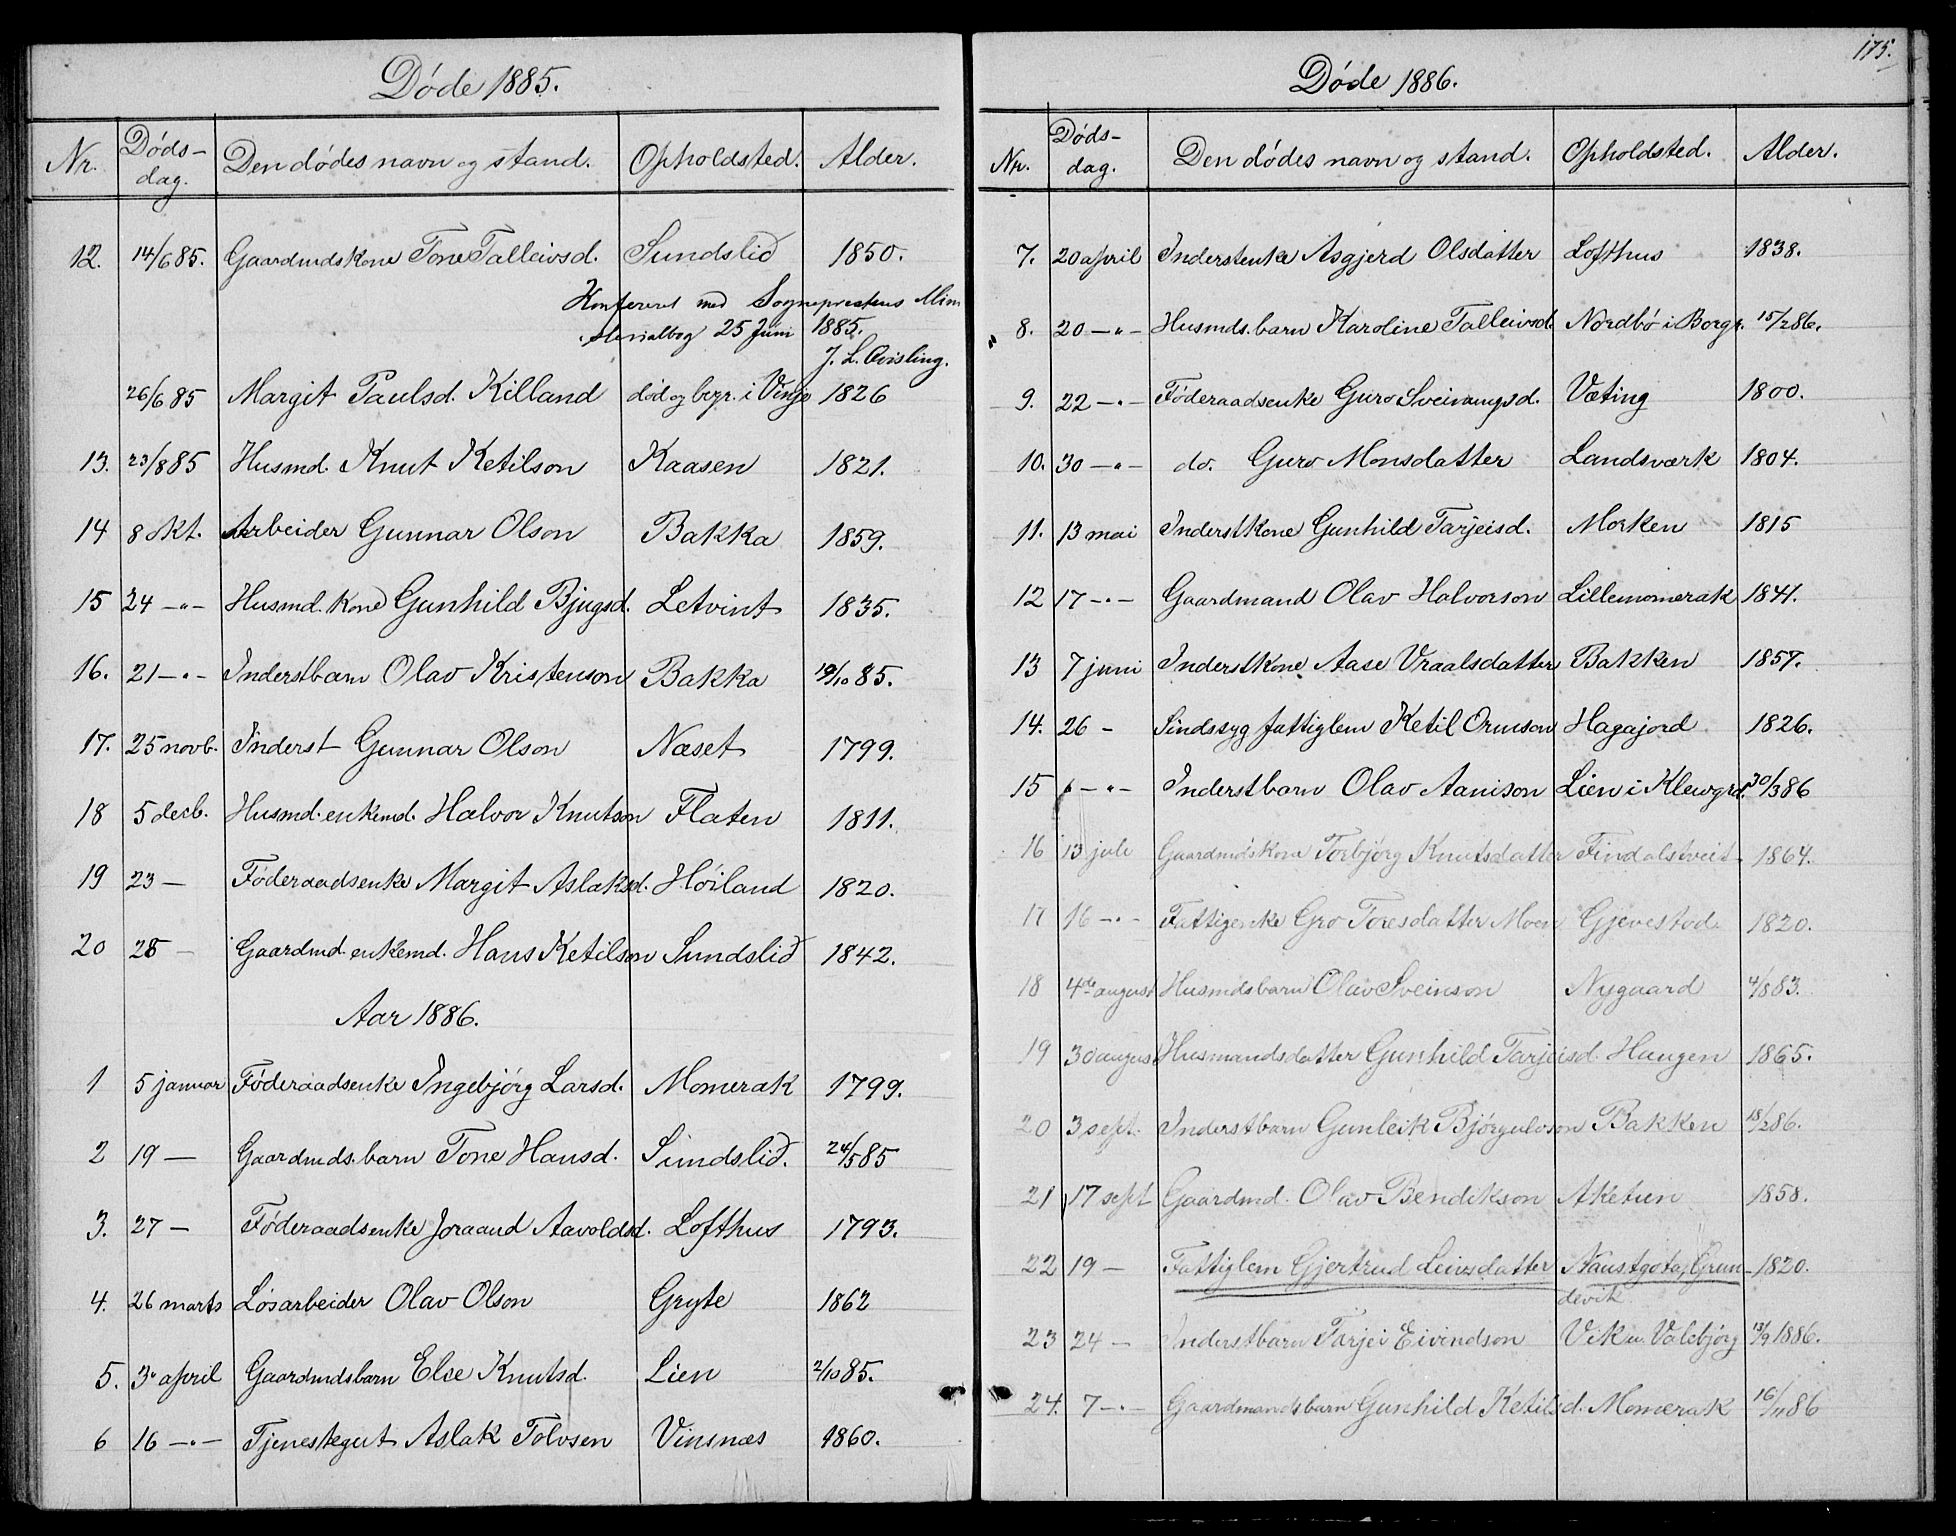 Døde 1885.
Nr. Døds-dag. Den dødes navn og stand. Opholdsted. Alder.
12. 14/6 85. Gaardmdskone Tone Talleivsd. Sundslid 1850.
Konfereret med Sogneprestens Min
isterialbog 25 Juni 1885.
J. L. Qvisling.
26/6 85 Margit Paulsd. Killand død og begr. i Vinje 1826
13. 23/8 85 Husmd. Knut Ketilson Kaasen 1821.
14 8 okt. Arbeider Gunnar Olson Bakka 1859.
15 24 -"- Husmd. kone Gunhild Bjugsd. Letvint 1835.
16. 21 -"- Inderstbarn Olav Kristenson Bakka 19/10 85.
17. 25 novb. Inderst Gunnar Olson Næset 1799.
18 5 decb. Husmd. enkemd. Halvor Knutson Flaten 1811.
19 23 - Føderaadsenke Margit Aslaksd. Høiland 1820.
20 28 - Gaardmd. enkemd. Hans Ketilson Sundslid 1842.
Aar 1886.
1 5 januar Føderaadsenke Ingebjørg Larsd. Momerak 1799.
2 19 - Gaardmds. barn Tone Hansd. Sundslid. 24/5 85
3. 27 - Føderaadsenke Joraand Aavoldsd. Lofthus 1793.
4. 26 marts Løsarbeider Olav Olson Gryte 1862
5. 3 april Gaardmdsbarn Else Knutsd. Lien 2/10 85.
6 16 -"- Tjenestegut Aslak Tolvsen Vinsnæs 1860.
175.
Døde 1886.
Nr. Døds-dag. Den dødes navn og stand. Opholdsted. Alder.
7. 20 april Inderstenke Asgjerd Olsdatter Lofthus 1838.
8. 20 -"- Husmds. barn Karoline Talleivsd. Nordbø i Borgr. 15/2 86.
9. 22 -"- Føderaadsenke Guro Sveinungsd. Væting 1800.
10. 30 -"- do. Guro Monsdatter Landsværk 1804.
11. 13 mai Inderstkone Gunhild Tarjeisd. Morken 1815
12 17 -"- Gaardmand Olav Halvorson Lillemomerak 1841.
13 7 juni Inderstkone Aase Vraalsdatter Bakken 1857.
14. 26 - Sindssyg fattiglem Ketil Ormson Hagajord 1826.
15 " -"- Inderstbarn Olav Aanison Lien i Klevgrd. 30/3 86
16 13 juli Gaardmdskone Torbjørg Knutsdatter Findalstveit 1864.
17 16 -"- Fattigenke Gro Toresdatter Moen Gjevestod 1820.
18 4de august Husmdsbarn Olav Sveinson Nygaard 4/8 83.
19 30 august Husmandsdatter Gunhild Tarjeisd. Haugen 1865.
20 3 sept. Inderstbarn Gunleik Bjørgulvson Bakken 18/2 86.
21 17 sept Gaardmd. Olav Bendikson Aketien 1858.
22 19 - Fattiglem Gjertrud Leivsdatter Naustgota, Grun- 1820.
devik
23 24 - Inderstbarn Tarjei Eivindson Vik u. Valebjørg 13/9 1886.
24. 7 -"- Gaardmandsbarn Gunhild Ketilsd. Momerak 16/11 86